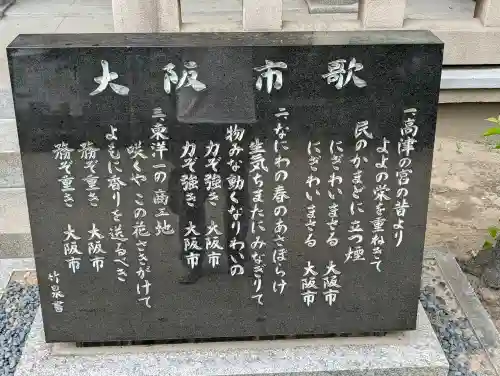 大阪市歌
一 高津の宮の昔より
よよの栄を重ねきて
民のかまどに立つ煙
にぎわいまさる 大阪市
にぎわいまさる 大阪市
二 なにわの春のあさぼらけ
生気ちまたにみなぎりて
物みな動くなりわいの
力ぞ強き 大阪市
力ぞ強き 大阪市
三 東洋一の商工地
咲くやこの花さきがけて
よもに香りを送るべき
務ぞ重き 大阪市
務ぞ重き 大阪市
竹泉書